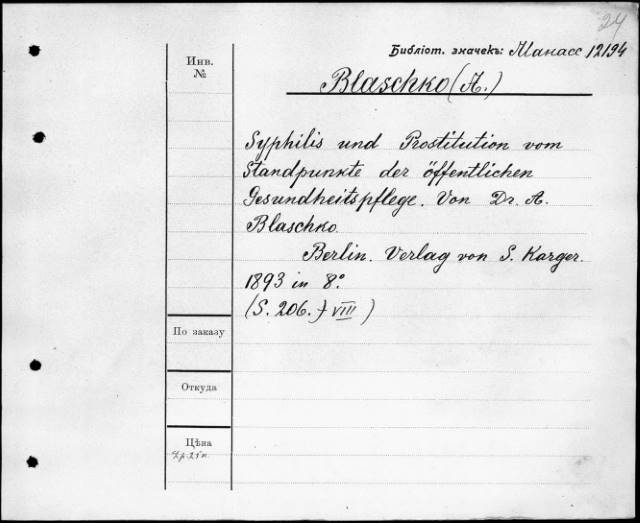 24
Библіот. значекъ: Манасс 12194
Инв.
№
Blaschko (A.)
Syphilis und Prostitution vom
Standpunkte der öffentlichen
Gesundheitspflege. Von Dr. A.
Blaschko.
Berlin. Verlag von S. Karger.
1893 in 8°.
(S. 206. + VIII)
По заказу
Откуда
Цѣна